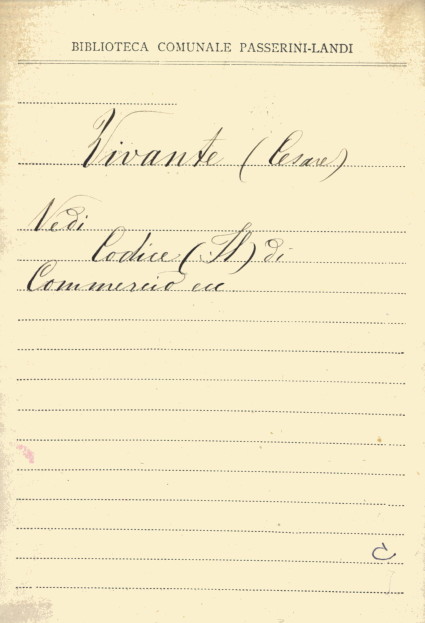 BIBLIOTECA COMUNALE PASSERINI-LANDI
Vivante (Cesare)
Vedi
Codice (Il) di
Commercio ecc
C